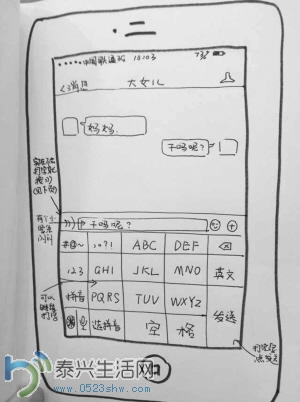 中国联通 4G 10:03 73%
<消息 大女儿
妈妈.
干吗呢？
干吗呢？
#@~ ,。?! ABC DEF
123 GHI JKL MNO 英文
拼音 PQRS TUV WXYZ 发送
选拼音 空格
可以
泰兴生活网
www.0523shw.com